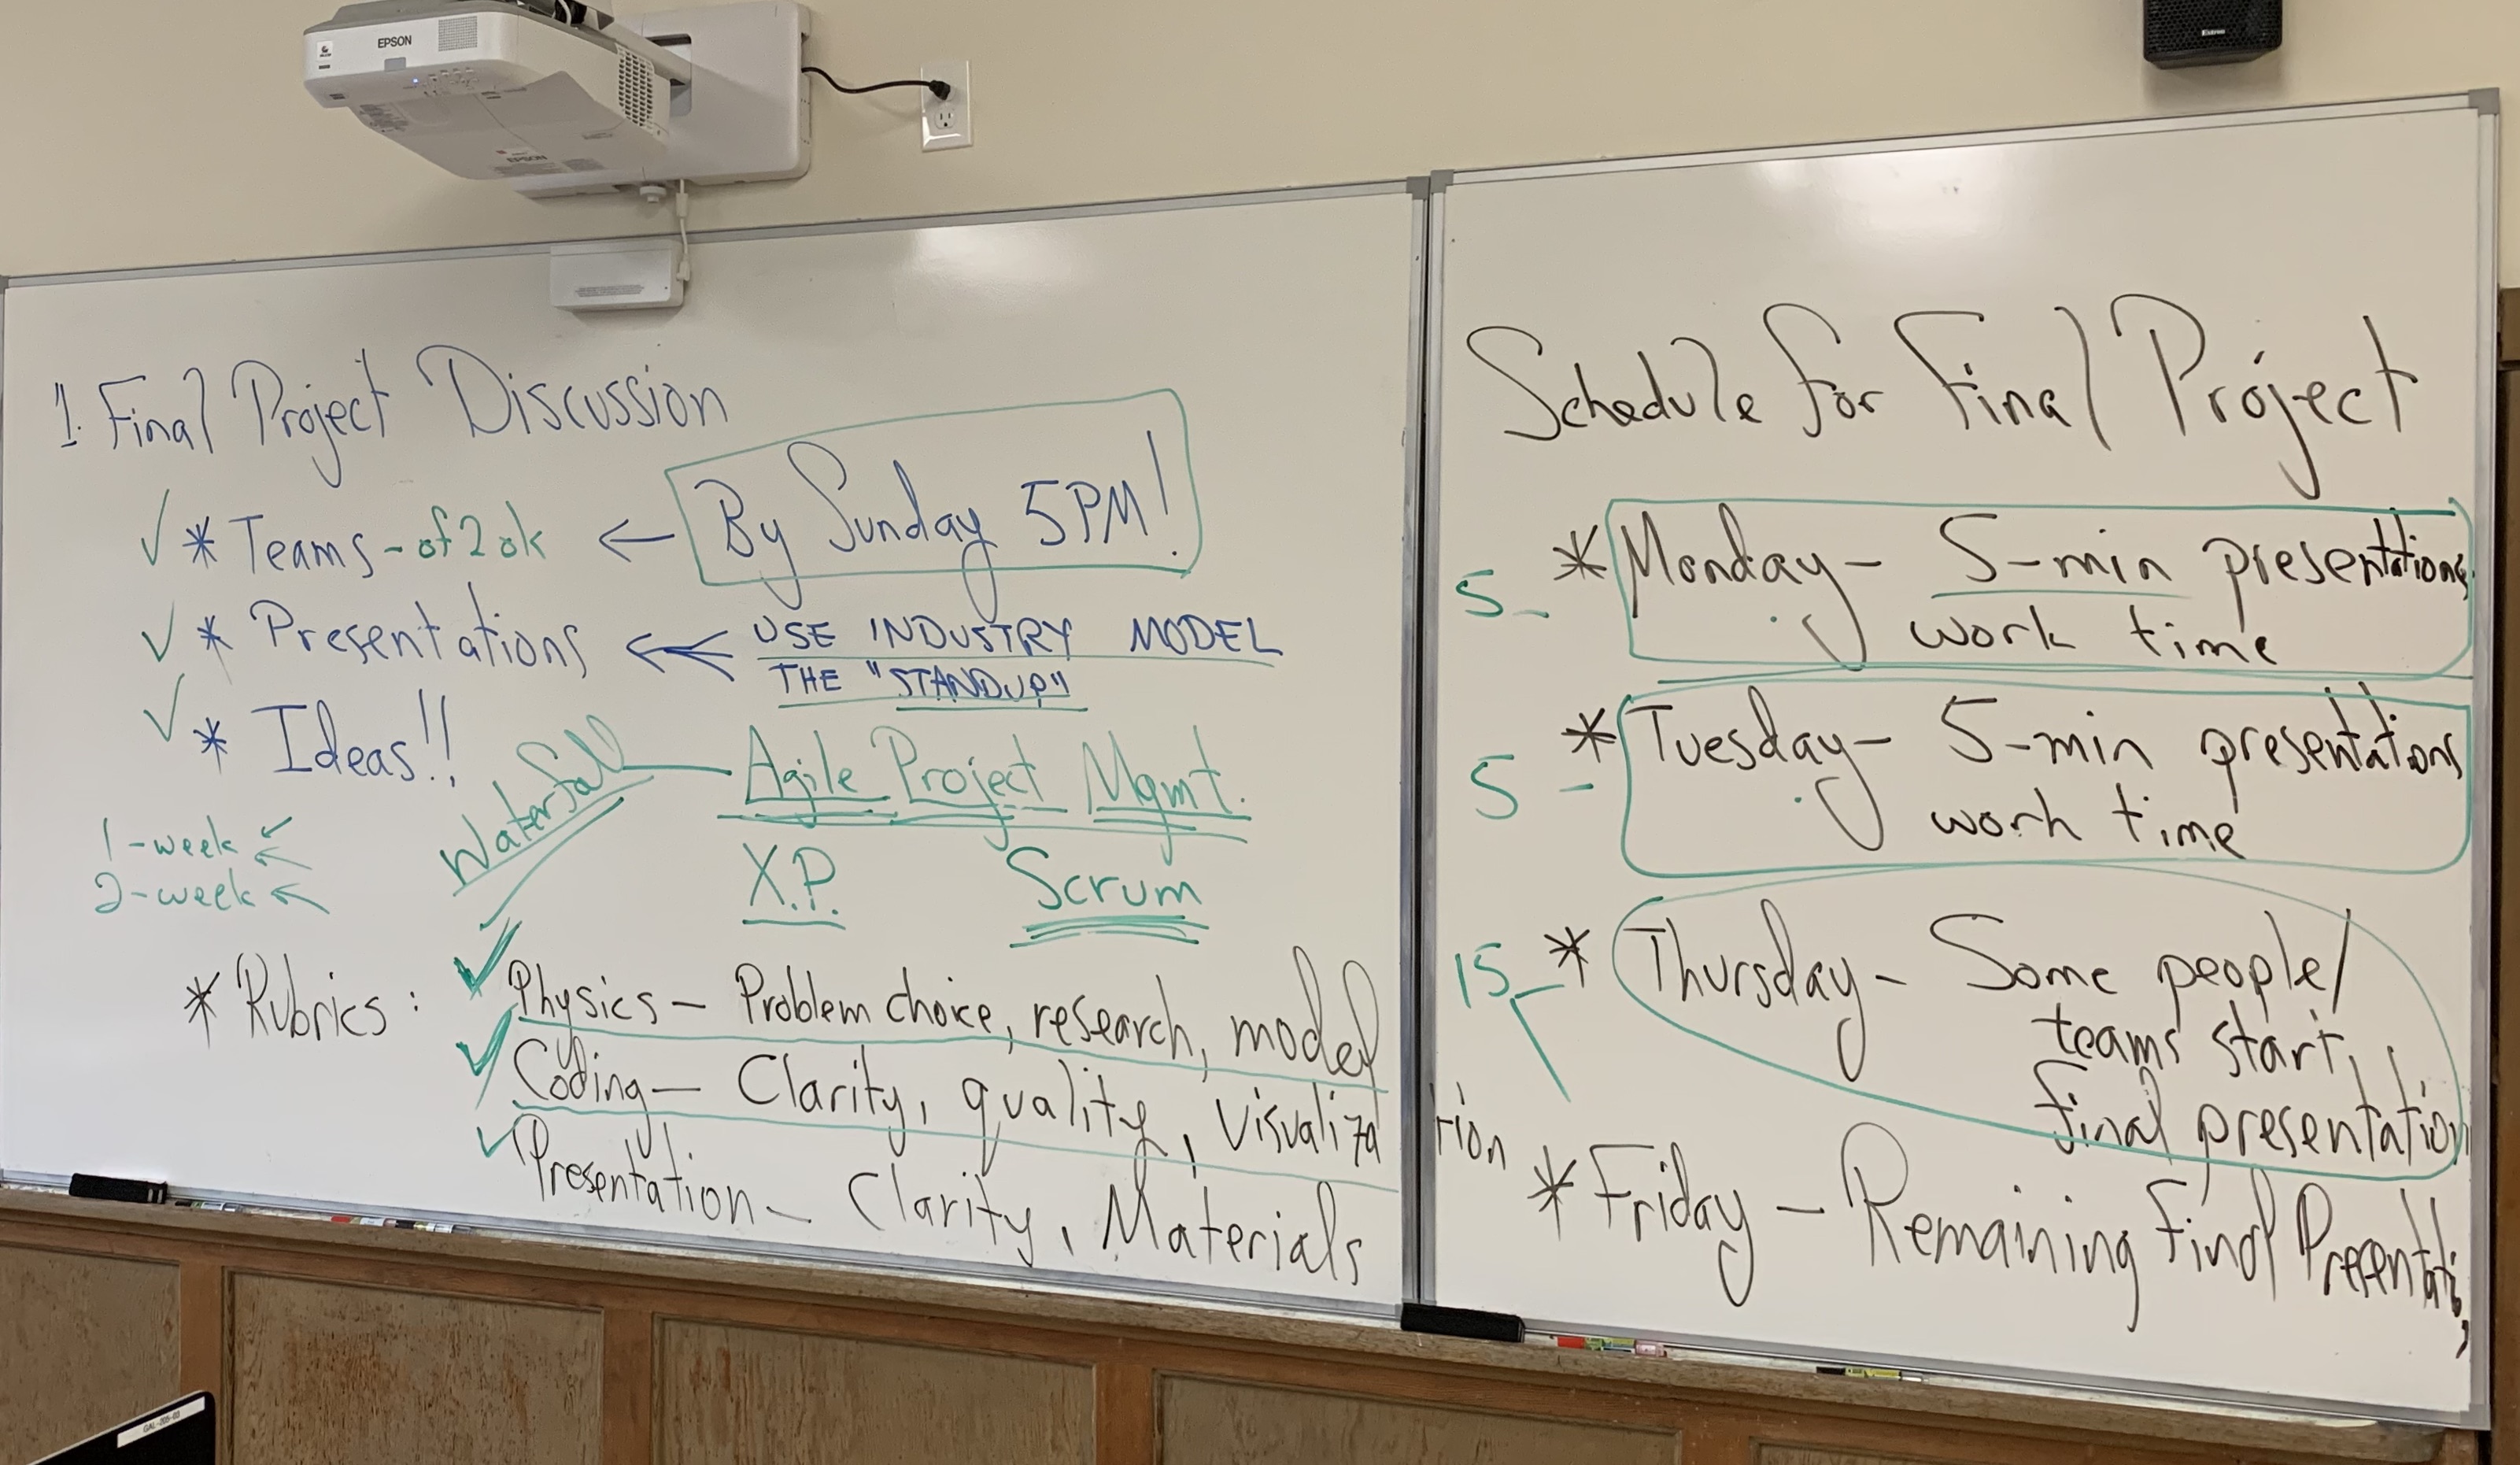 EPSON
EPSON
Extron
1. Final Project Discussion
✓ * Teams - of 2 ok ← By Sunday 5PM!
✓ * Presentations ← USE INDUSTRY MODEL
THE "STANDUP"
✓ * Ideas!!
Waterfall — Agile Project Mgmt.
1-week ←
2-week ←
X.P. Scrum
* Rubrics: ✓ Physics — Problem choice, research, model
✓ Coding — Clarity, quality, visualization
✓ Presentation — Clarity, Materials
Schedule for Final Project
5 - * Monday - 5-min presentations
work time
5 - * Tuesday - 5-min presentations
work time
15 - * Thursday - Some people/
teams start
final presentation
* Friday - Remaining Final Presentations
GAL-205-03